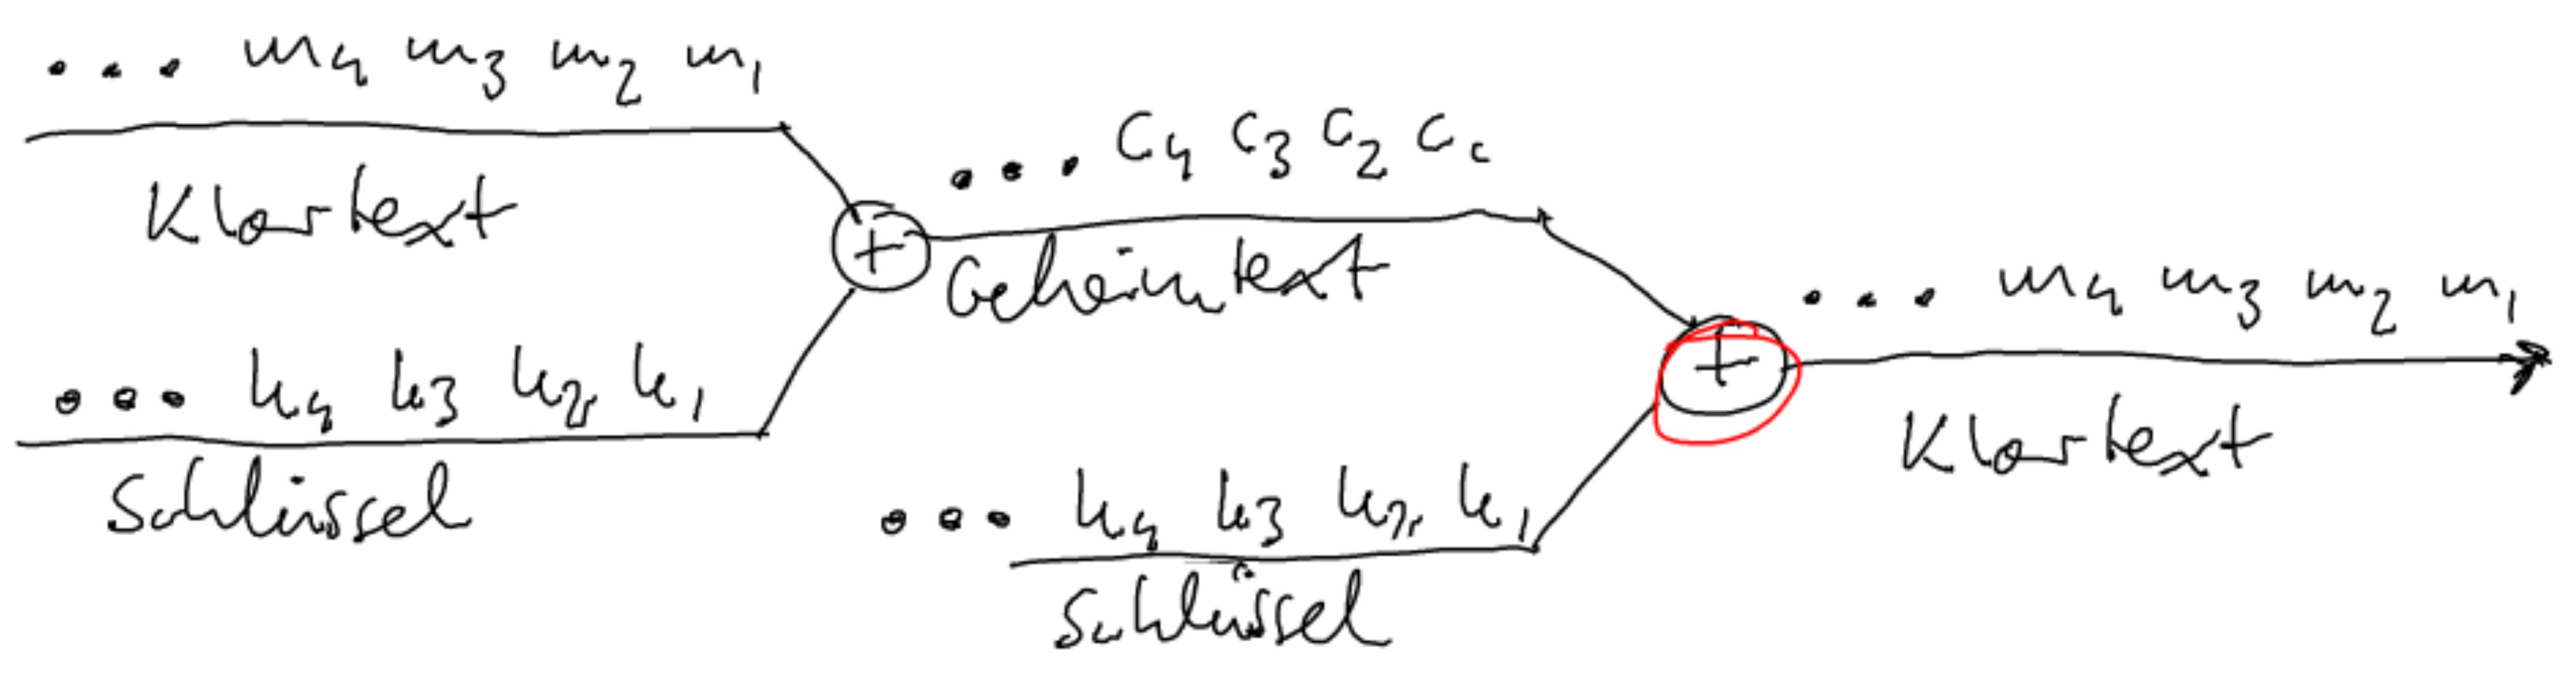 ... m4 m3 m2 m1
Klartext
... k4 k3 k2 k1
Schlüssel
+
... c4 c3 c2 c1
Geheimtext
... k4 k3 k2 k1
Schlüssel
+
... m4 m3 m2 m1
Klartext